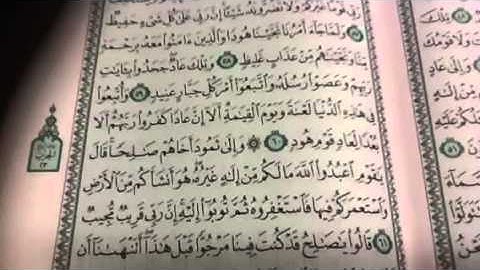 رَبِّي قَوْمًا غَيْرَكُمْ وَلَا تَضُرُّونَهُ شَيْئًا إِنَّ رَبِّي عَلَىٰ كُلِّ شَيْءٍ حَفِيظٌ
٥٧ وَلَمَّا جَآءَ أَمْرُنَا نَجَّيْنَا هُودًا وَالَّذِينَ ءَامَنُوا مَعَهُ بِرَحْمَةٍ
مِّنَّا وَنَجَّيْنَٰهُم مِّنْ عَذَابٍ غَلِيظٍ ٥٨ وَتِلْكَ عَادٌ جَحَدُوا بِـَٔايَٰتِ
رَبِّهِمْ وَعَصَوْا رُسُلَهُ وَاتَّبَعُوا أَمْرَ كُلِّ جَبَّارٍ عَنِيدٍ ٥٩ وَأُتْبِعُوا
فِي هَٰذِهِ الدُّنْيَا لَعْنَةً وَيَوْمَ الْقِيَٰمَةِ أَلَآ إِنَّ عَادًا كَفَرُوا رَبَّهُمْ أَلَا
بُعْدًا لِّعَادٍ قَوْمِ هُودٍ ٦٠ ۞ وَإِلَىٰ ثَمُودَ أَخَاهُمْ صَٰلِحًا قَالَ
يَٰقَوْمِ اعْبُدُوا اللَّهَ مَا لَكُم مِّنْ إِلَٰهٍ غَيْرُهُ هُوَ أَنشَأَكُم مِّنَ الْأَرْضِ
وَاسْتَعْمَرَكُمْ فِيهَا فَاسْتَغْفِرُوهُ ثُمَّ تُوبُوا إِلَيْهِ إِنَّ رَبِّي قَرِيبٌ مُّجِيبٌ
٦١ قَالُوا يَٰصَٰلِحُ قَدْ كُنتَ فِينَا مَرْجُوًّا قَبْلَ هَٰذَا أَتَنْهَىٰنَآ أَن
الحزب
٢٣
وَتِلْكَ
وَلَا قَوْمُكَ
وَإِلَىٰ عَادٍ
مِّنْ إِلَٰهٍ
عَلَيْهِ
٥١